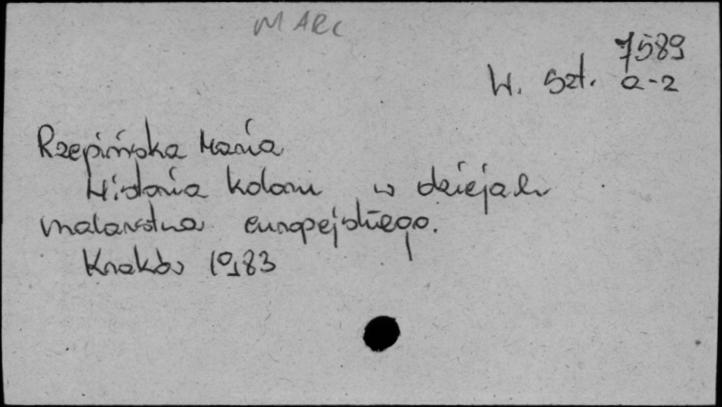 MARC
7589
W. Szt. a-z
Rzepińska Maria
Historia koloru w dziejach
malarstwa europejskiego.
Kraków 1983